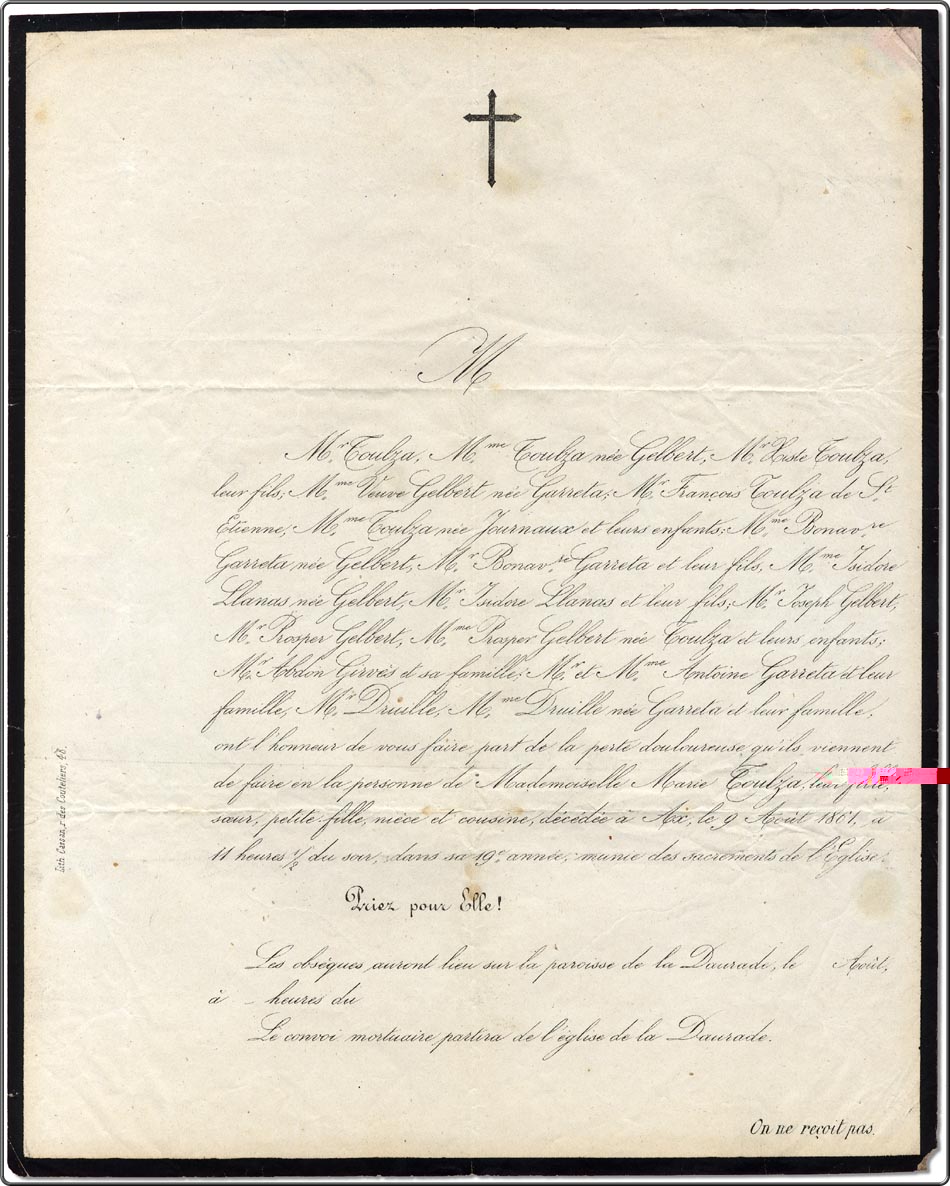 M
M.r Toulza, M.me Toulza née Gelbert, M.r Xiste Toulza,
leur fils; M.me Veuve Gelbert née Garreta; M.r François Toulza de S.t
Etienne, M.me Toulza née Journaux et leurs enfants; M.me Bonav.re
Garreta née Gelbert, M.r Bonav.re Garreta et leur fils, M.me Isidore
Llanas née Gelbert, M.r Isidore Llanas et leur fils; M.r Joseph Gelbert,
M.r Prosper Gelbert, M.me Prosper Gelbert née Toulza et leurs enfants;
M.r Abdon Girvès et sa famille; M.r et M.me Antoine Garreta et leur
famille, M.r Druille, M.me Druille née Garreta et leur famille,
ont l'honneur de vous faire part de la perte douloureuse qu'ils viennent
de faire en la personne de Mademoiselle Marie Toulza, leur
sœur, petite-fille, nièce et cousine, décédée à Ax, le 9 Août 1861, à
11 heures 1/2 du soir, dans sa 19e année, munie des sacrements de l'Eglise.
Priez pour Elle!
Les obsèques auront lieu sur la paroisse de la Daurade, le Août,
à heures du
Le convoi mortuaire partira de l'église de la Daurade.
On ne reçoit pas.
Lith. Cassan, r. des Couteliers, 48.